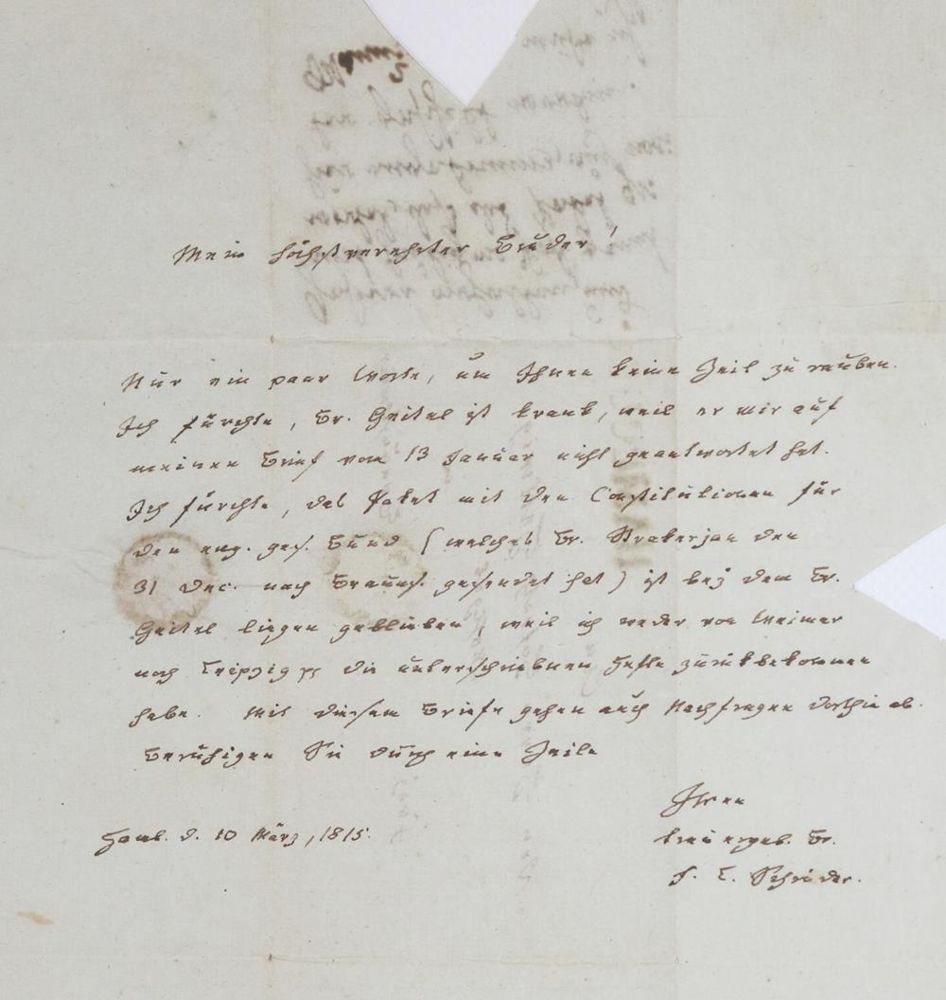 Mein höchstverehrter Bruder!
Nur ein paar Worte, um Ihnen keine Zeit zu rauben.
Ich fürchte, Br. Geitel ist krank, weil er mir auf
meinen Brief vom 13 Januar nicht geantwortet hat.
Ich fürchte, das Paket mit den Constitutionen für
den eng. gesch. Bund (welches Br. Strakerjan den
31 Dec. nach Braunsch. gesendet hat) ist bey dem Br.
Geitel liegen geblieben, weil ich weder von Weimar
noch Leipzig pp die unterschriebnen Hefte zurükbekommen
habe. Mit diesem Briefe gehen auch Nachfragen dorthin ab.
Beruhigen Sie durch eine Zeile
Ihren
Hamb. d. 10 März, 1815.
treu ergeb. Br.
F. L. Schröder.